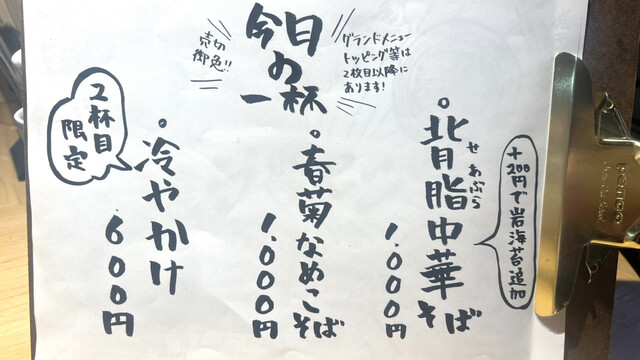 今日の一杯
売切御免!!
グランドメニュー
トッピング等は
2枚目以降に
あります!
・背脂中華そば
せあぶら
1.000円
+200円で岩海苔追加
・春菊なめこそば
1.000円
2杯目
限定
・冷やかけ
600円